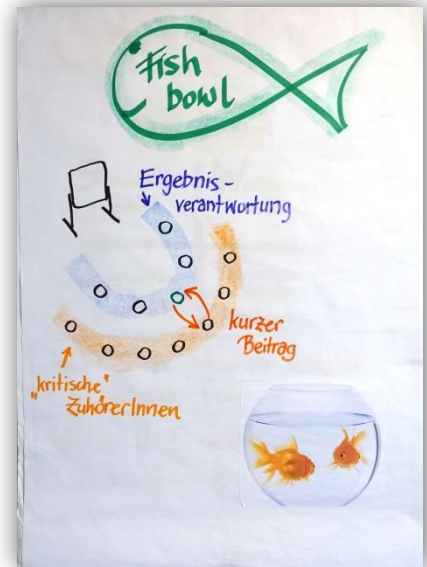 Fish
bowl
Ergebnis-
verantwortung
kurzer
Beitrag
"kritische"
ZuhörerInnen